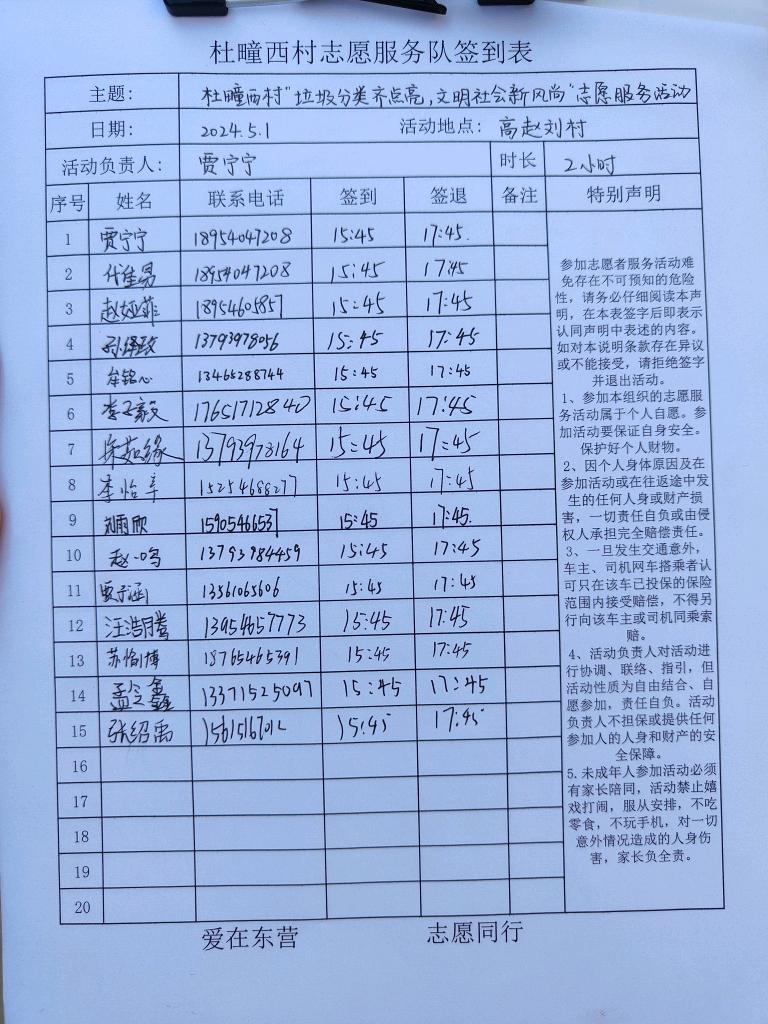 杜疃西村志愿服务队签到表
主题： 杜疃西村"垃圾分类齐点亮,文明社会新风尚"志愿服务活动
日期： 2024.5.1 活动地点： 高赵刘村
活动负责人： 贾宁宁 时长 2小时
序号 姓名 联系电话 签到 签退 备注 特别声明
1 贾宁宁 18954047208 15:45 17:45.
2 代佳易 18954047208 15:45 17:45
3 赵娅菲 18954605857 15:45 17:45
4 13793978056 15:45 17:45
5 牟铭心 13465288744 15:45 17:45
6 李子毅 17651712840 15:45 17:45
7 13793973164 15:45 17:45
8 李怡 15254688277 15:45 17:45
9 刘雨欣 1590546653 15:45 17:45.
10 赵一鸣 13793984459 15:45 17:45
11 贾子涵 13561065606 15:45 17:45
12 汪浩腾 13954657773 15:45 17:45
13 苏怡博 18765465391 15:45 17:45
14 孟令鑫 13371525097 15:45 17:45
15 张绍禹 15:45 17:45
16
17
18
19
20
参加志愿者服务活动难
免存在不可预知的危险
性，请务必仔细阅读本声
明，在本表签字后即表示
认同声明中表述的内容。
如对本说明条款存在异议
或不能接受，请拒绝签字
并退出活动。
1、参加本组织的志愿服
务活动属于个人自愿。参
加活动要保证自身安全。
保护好个人财物。
2、因个人身体原因及在
参加活动或在往返途中发
生的任何人身或财产损
害，一切责任自负或由侵
权人承担完全赔偿责任。
3、一旦发生交通意外，
车主、司机网车搭乘者认
可只在该车已投保的保险
范围内接受赔偿，不得另
行向该车主或司机同乘索
赔。
4、活动负责人对活动进
行协调、联络、指引，但
活动性质为自由结合、自
愿参加，责任自负。活动
负责人不担保或提供任何
参加人的人身和财产的安
全保障。
5.未成年人参加活动必须
有家长陪同，活动禁止嬉
戏打闹，服从安排，不吃
零食，不玩手机，对一切
意外情况造成的人身伤
害，家长负全责。
爱在东营 志愿同行